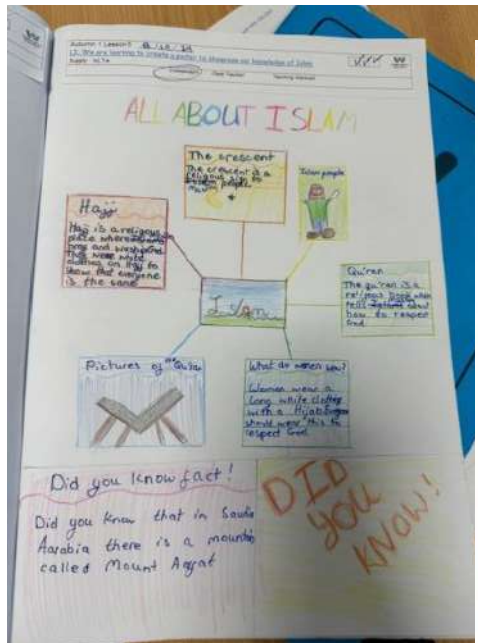 Autumn 1 Lesson 5
LI: We are learning to create a poster to showcase our knowledge of Islam
Supply HLTA
Independent Class Teacher
ALL ABOUT ISLAM
The crescent
The crescent is a
religious sign to
people
Islam people
Hajj
Hajj is a religious
place where
pray and worship
They wear white
clothes on Hajj to
show that everyone
is the same
Islam
Qu'ran
The qu'ran is a
religious book which
tells how
how to respect
God.
Pictures of the Qu'ran
What do women wear?
Women wear a
long white clothes
with a Hijab
should wear this to
respect God
Did you know fact!
Did you know that in Saudia
Aarabia there is a mountain
called Mount Arafat
DID
YOU
KNOW!